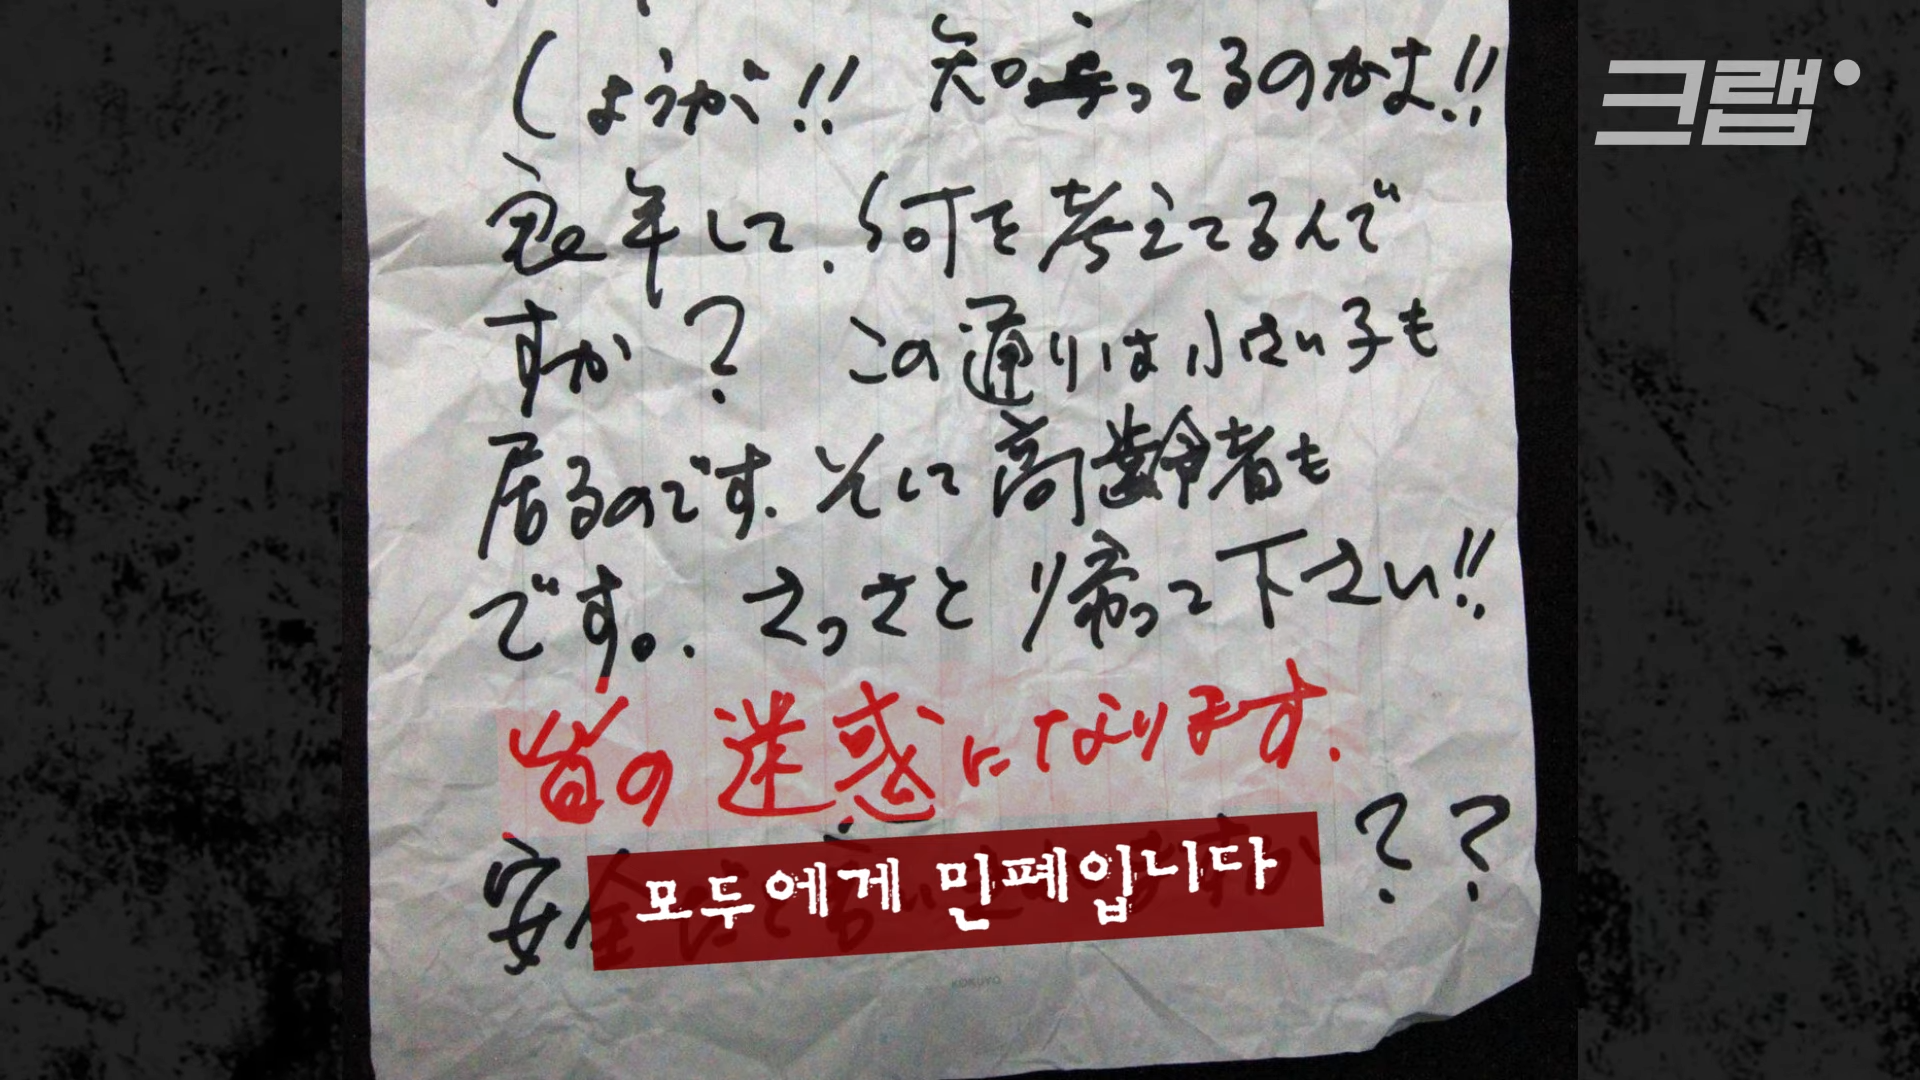 しょうが!! 知ってるのかよ!!
良年して、何を考えてるんで
すか? この通りは小さい子も
居るのです。そして高齢者も
です。さっさと帰って下さい!!
皆の迷惑になります。
安全だと言いきれますか??
모두에게 민폐입니다
KOKUYO
크랩